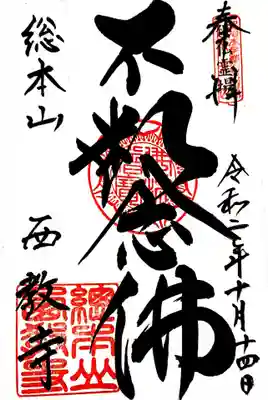 奉拝
令和二年十月十四日
不断念佛
総本山
西教寺